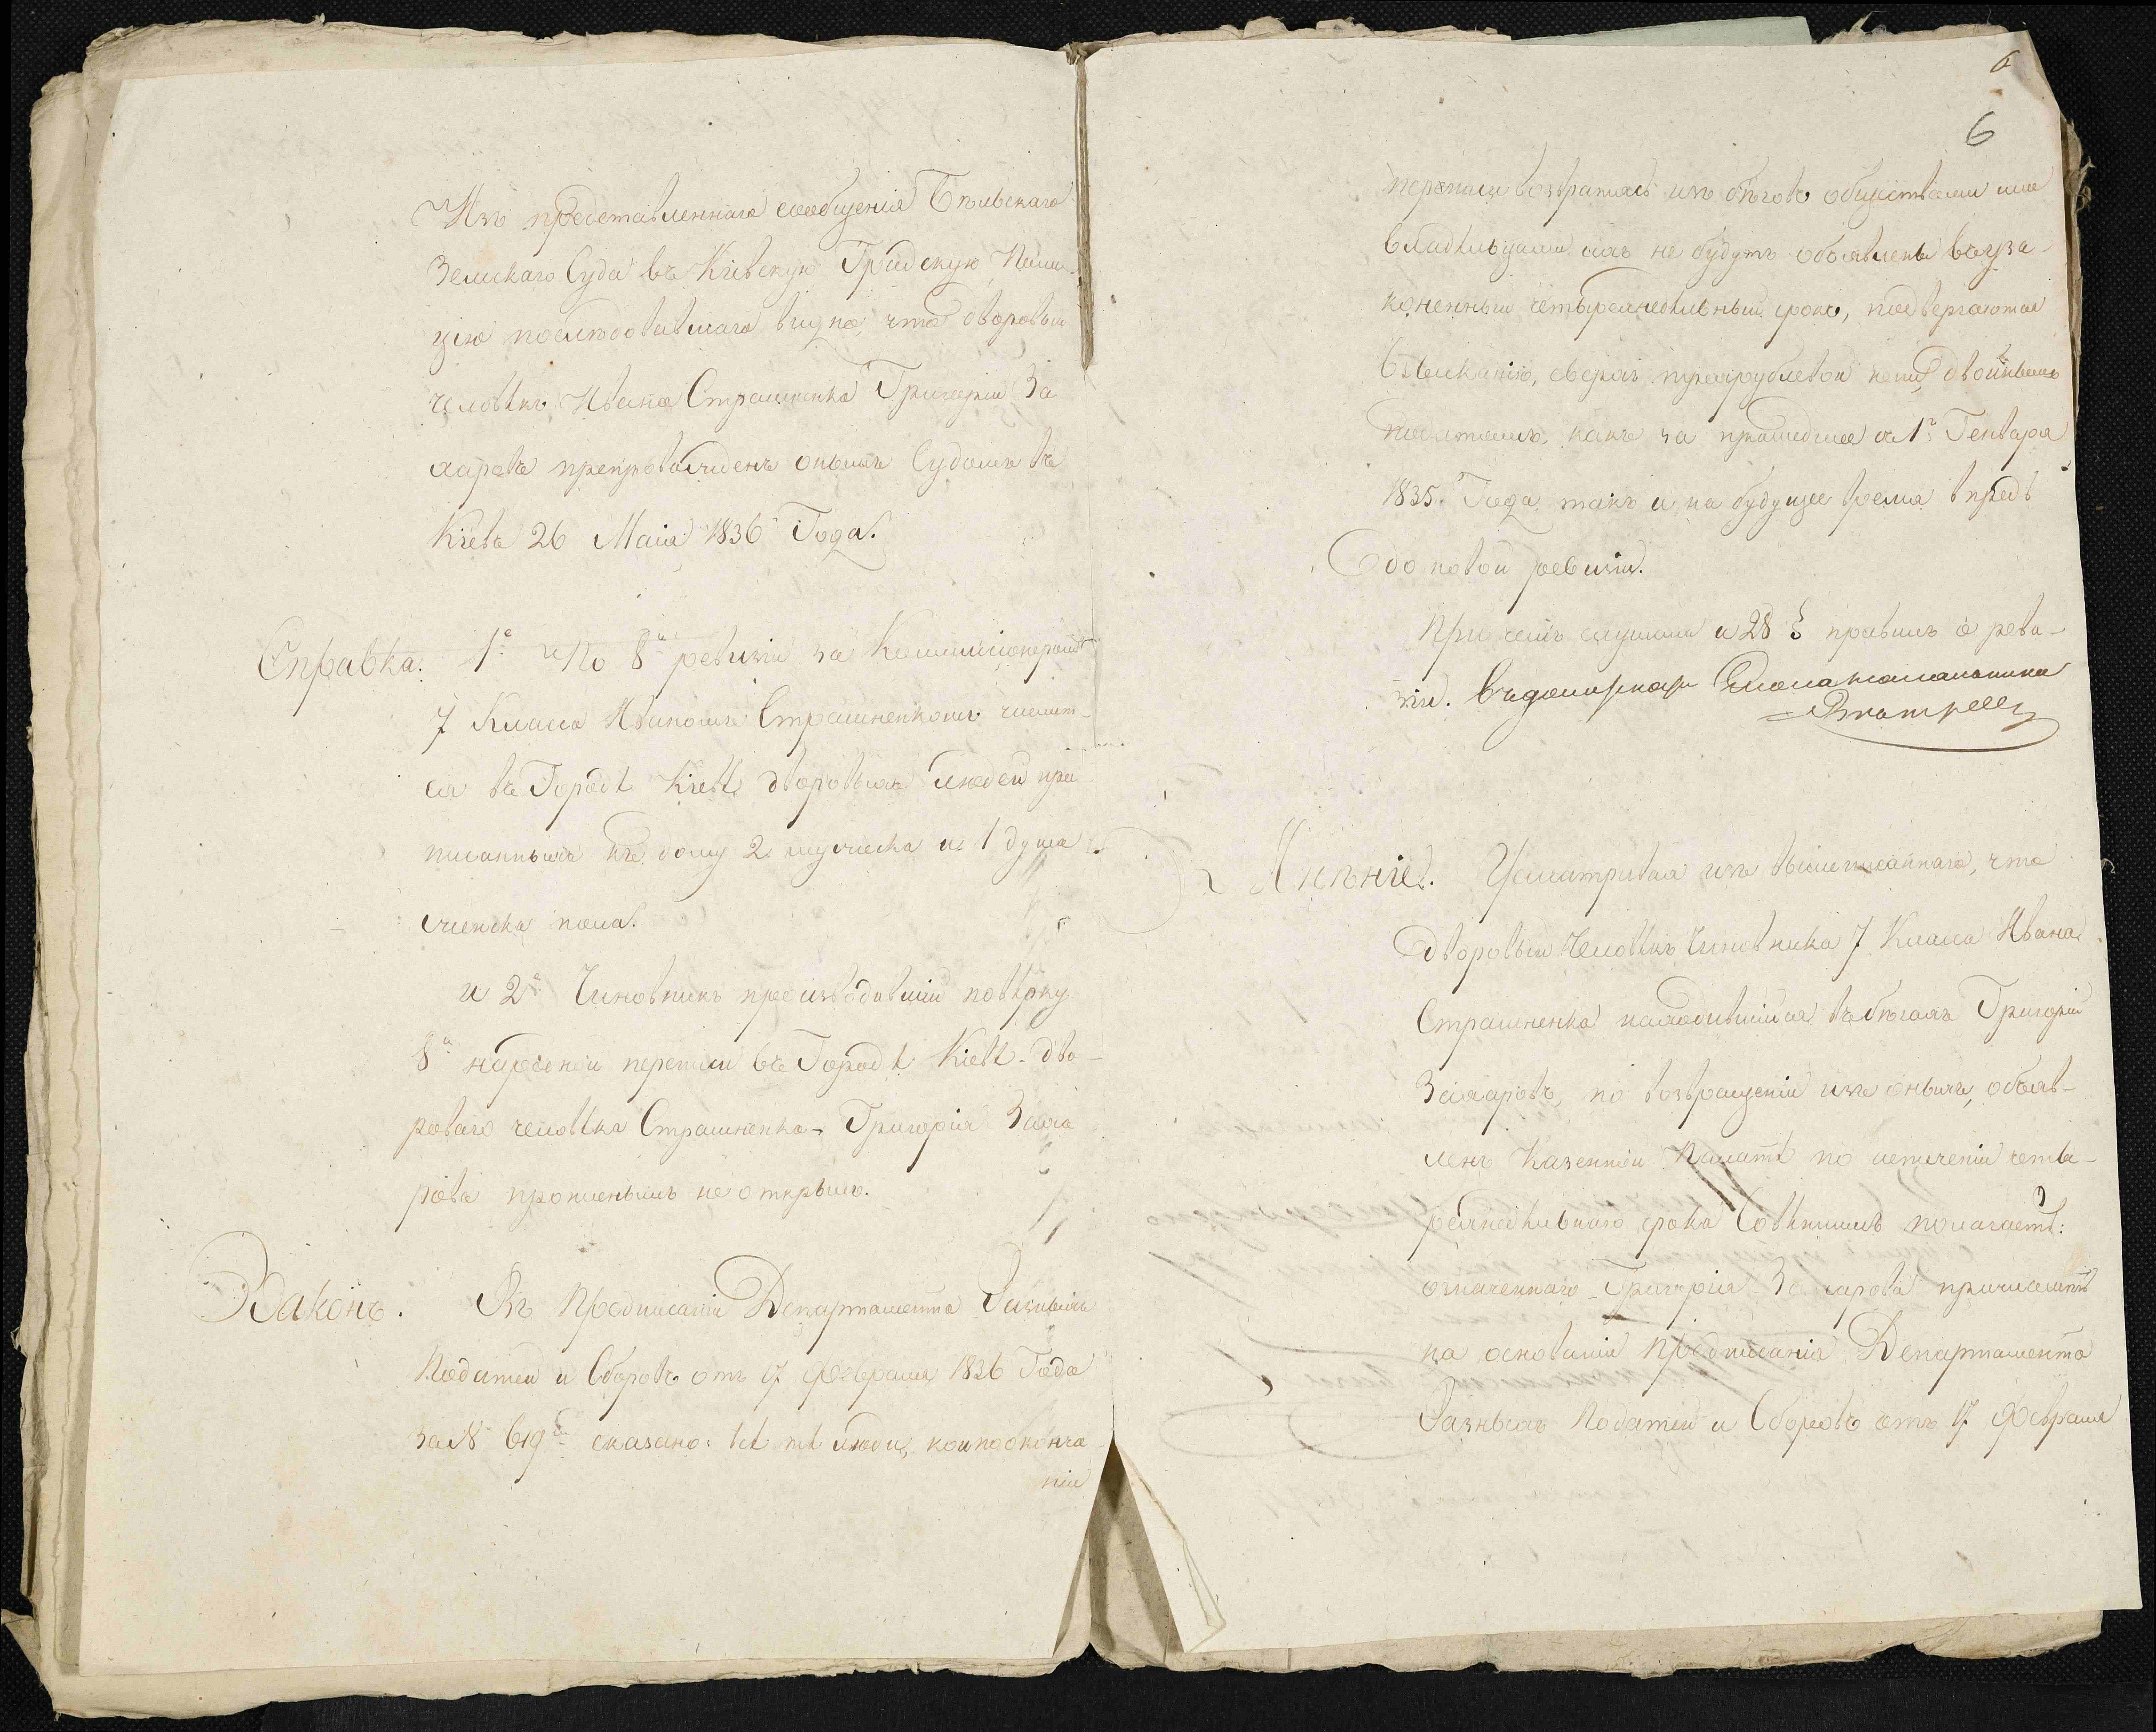 Изъ представленнаго сообщенія Бѣльскаго
Земскаго Суда въ Кіевскую Градскую Поли-
цію послѣдовавшаго видно, что дворовый
человѣкъ Ивана Страшненка Григорій За
харовъ препровожденъ онымъ Судомъ въ
Кіевъ 26 Маія 1836 Года.
Справка. 1е По 8й ревизіи за Коммисіонеромъ
7 Класса Иваномъ Страшненкомъ числит-
ся въ Городѣ Кіевѣ дворовыхъ людей при
писанныхъ къ дому 2 мужеска и 1 душа
женска пола.
и 2е Чиновникъ производившій повѣрку
8й народной переписи въ Городѣ Кіевѣ дво-
роваго человѣка Страшненка Григорія Заха
рова прописнымъ не открылъ.
Законъ. Въ Предписаніи Департамента Разныхъ
Податей и Сборовъ отъ 17 Февраля 1836 Года
за № 619м сказано: всѣ тѣ люди, кои по оконча
ніи
6
6
переписи возвратясь изъ бѣговъ обществами или
владѣльцами ихъ не будутъ объявлены въ уза-
коненный четырехнедѣльный срокъ, подвергаются
взысканію, сверхъ трехрублевой пени, двойныхъ
податей, какъ за прошедшее съ 1го Генваря
1835. Года, такъ и на будущее время впредь
до новой ревизіи.
При семъ слушали и 28 § правилъ о реви-
зіи.
Мнѣніе. Усматривая изъ вышеписаннаго, что
дворовый человѣкъ Чиновника 7 Класса Ивана
Страшненка находившійся въ бѣгахъ Григорій
Захаровъ, по возвращеніи изъ оныхъ, объяв-
ленъ Казенной Палатѣ по истеченіи четы-
рехнедѣльнаго срока Совѣтникъ полагаетъ:
означеннаго Григорія Захарова причислить
на основаніи Предписанія Департамента
Разныхъ Податей и Сборовъ отъ 17 Февраля